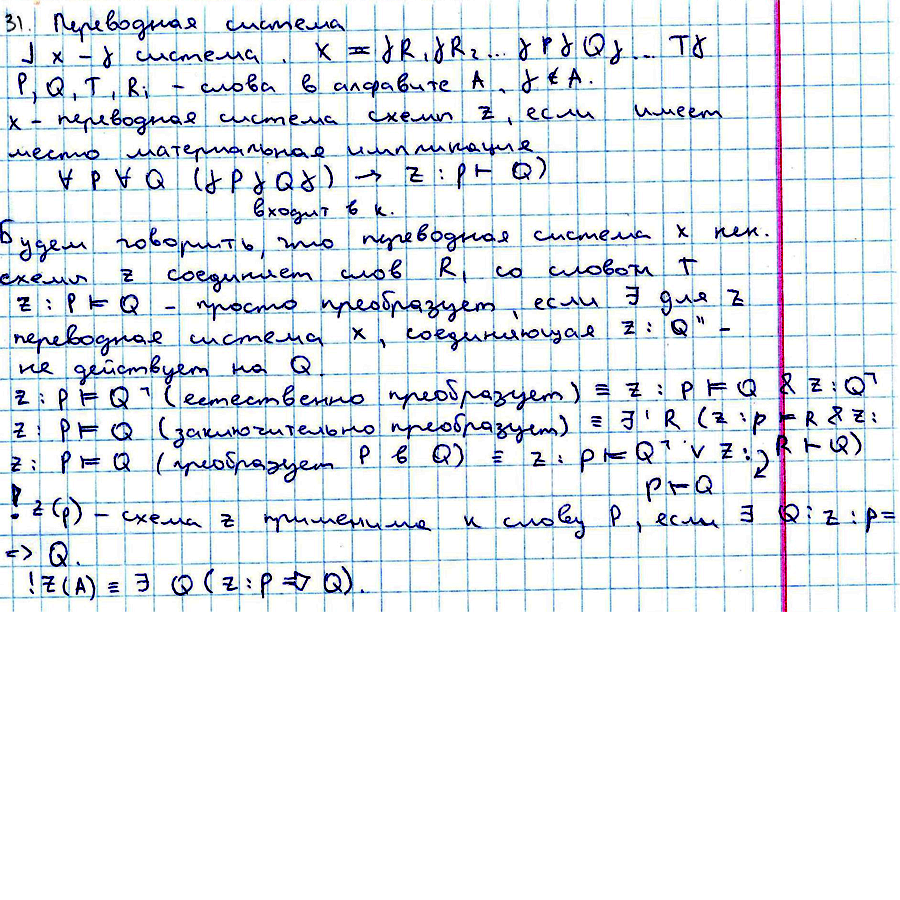 31. Переводная система
] x – γ система. X = γR₁γR₂... γPγQγ... Tγ
P, Q, T, Ri – слова в алфавите A, γ ∉ A.
x – переводная система схемы z, если имеет
место материальная импликация
∀ P ∀ Q (γPγQγ) → z : P ⊢ Q)
входит в к.
Будем говорить, что переводная система x нек.
схемы z соединяет слов R₁ со словом T
z : P ⊨ Q – просто преобразует, если ∃ для z
переводная система x, соединяющая z : Q" –
не действует на Q.
z : P ⊨ Q ⌝ (естественно преобразует) ≡ z : P ⊨ Q & z : Q ⌝
z : P ⊨ Q (заключительно преобразует) ≡ ∃' R (z : p ⊢ R & z :
z : P ⊨ Q (преобразует P в Q) ≡ z : P ⊨ Q ⌝ ∨ z : R ⊢ Q)
P ⊢ Q
! z(p) – схема z применима к слову P, если ∃ Q : z : p =
=> Q.
! Z(A) ≡ ∃ Q (z : p => Q).